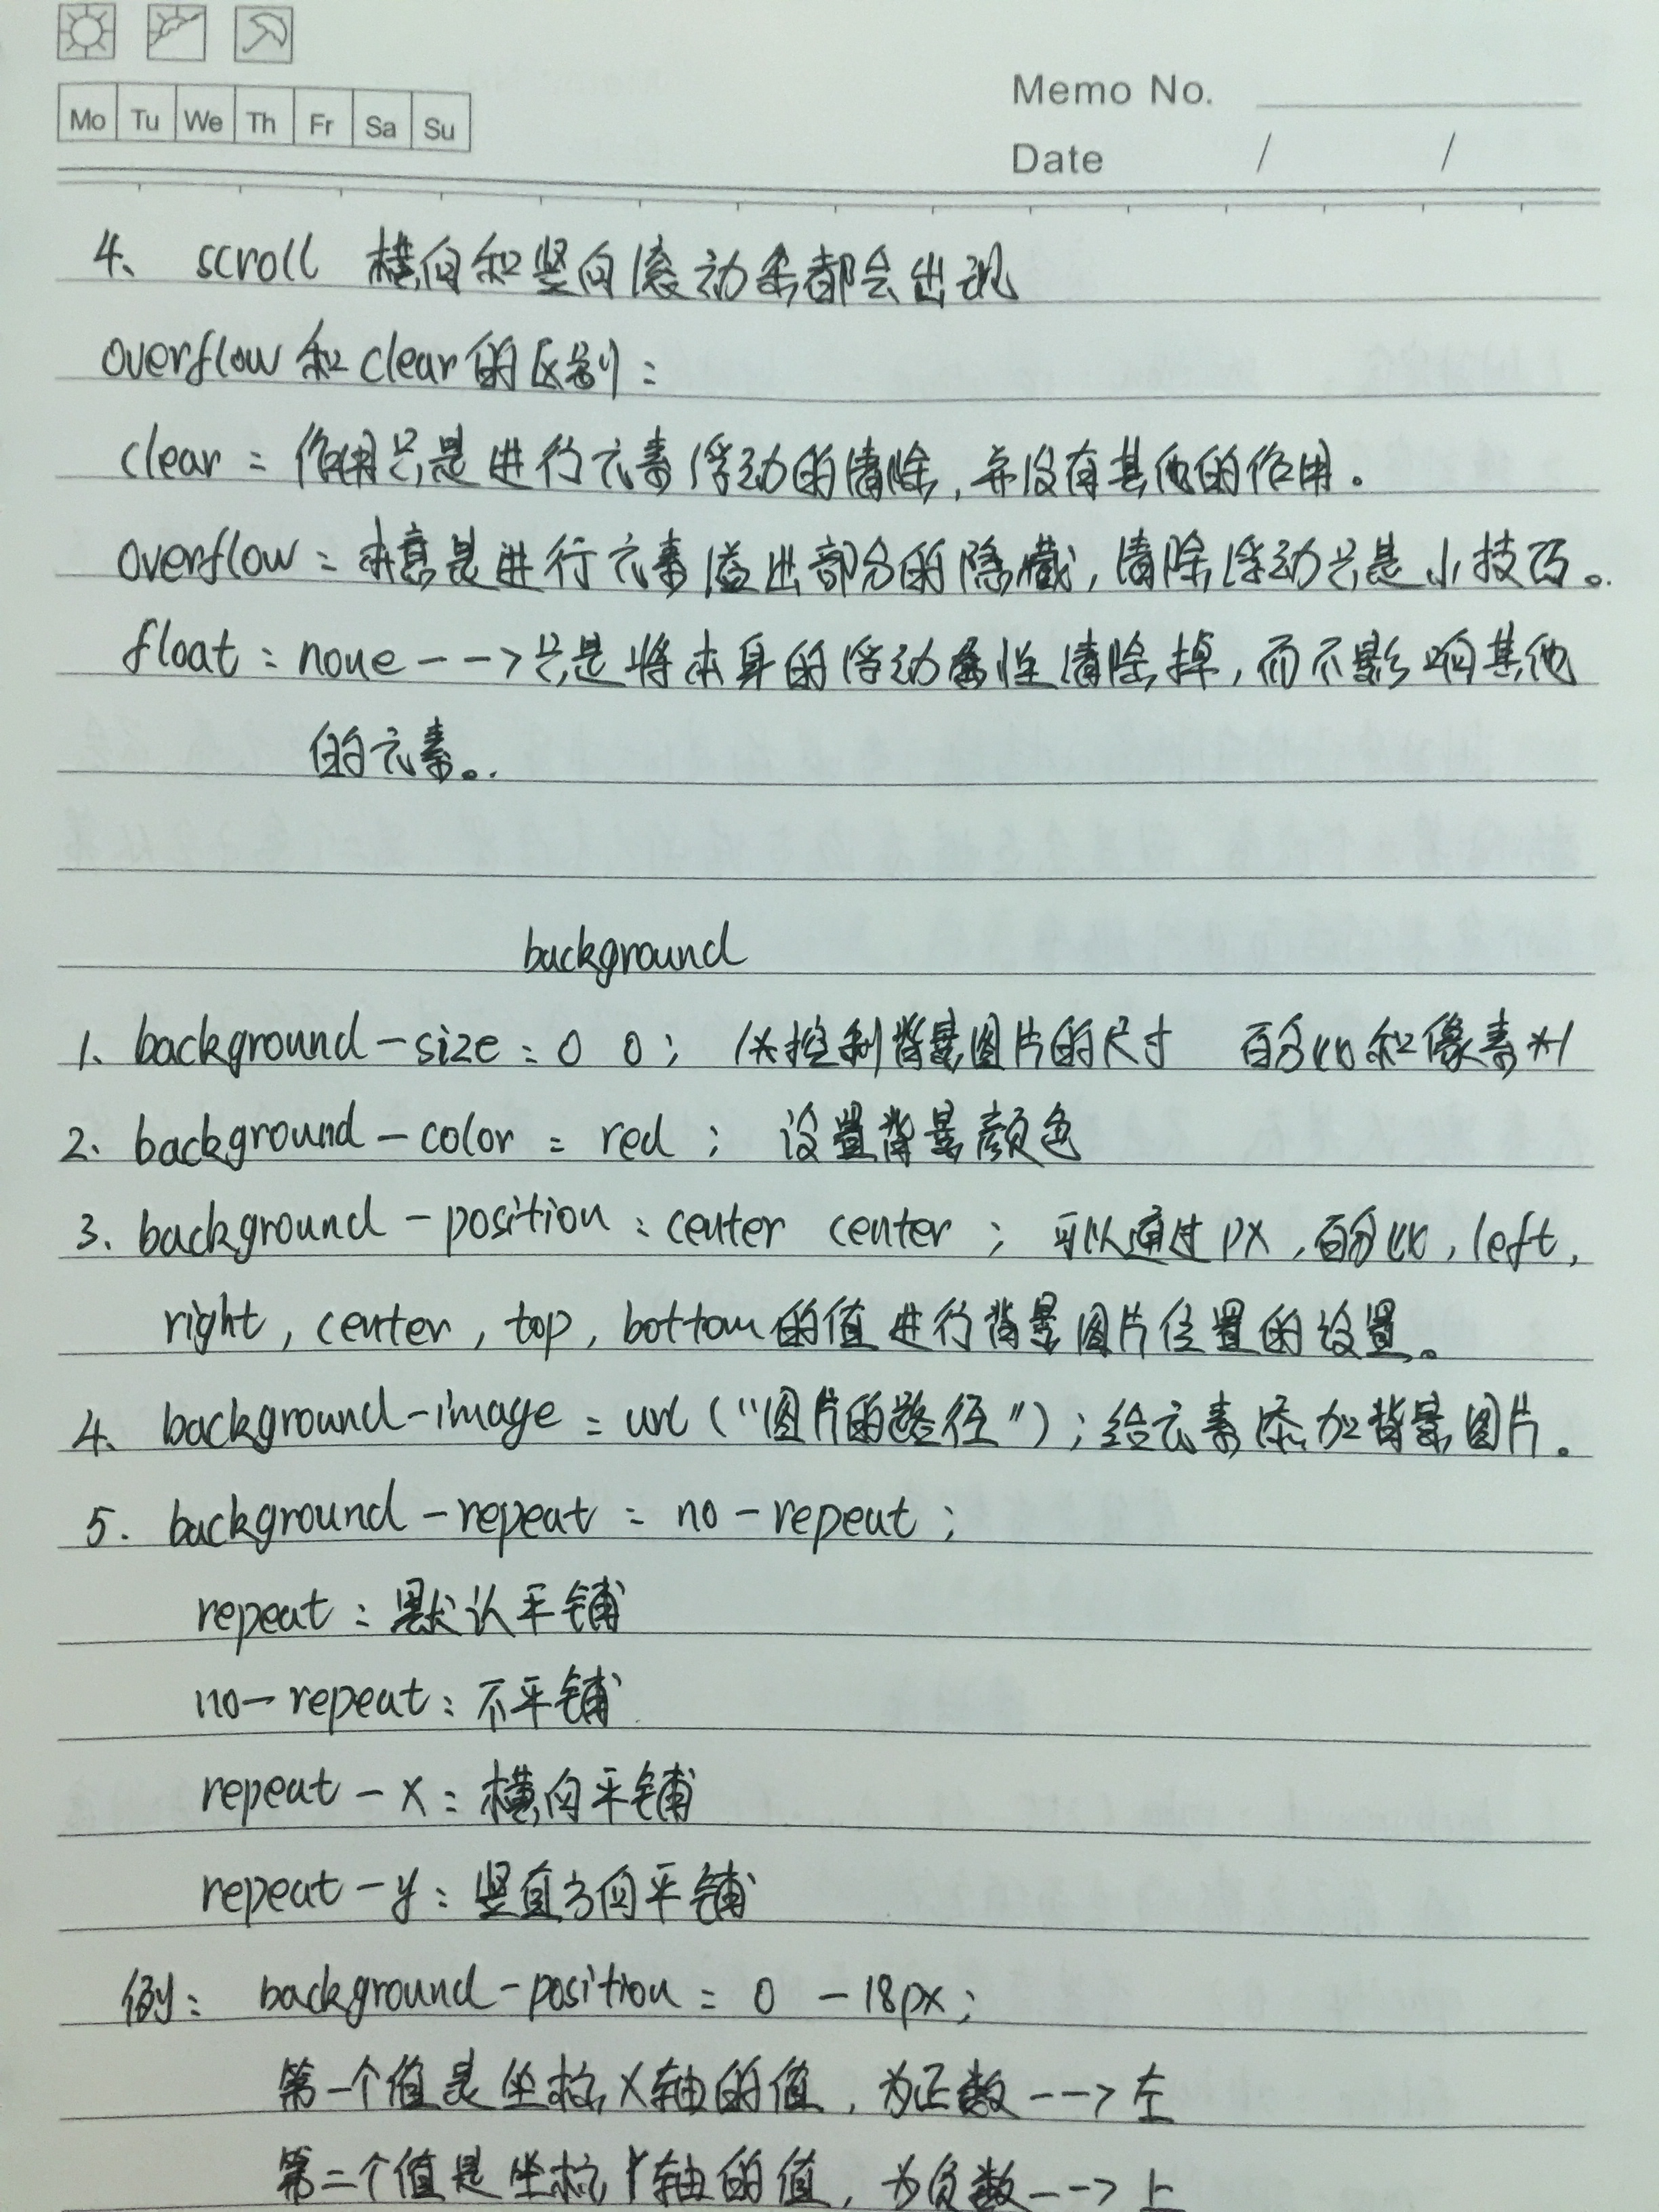 Memo No.
Mo Tu We Th Fr Sa Su
Date / /
4、 scroll 横向和竖向滚动条都会出现
overflow 和 clear 的区别：
clear：作用只是进行元素浮动的清除，并没有其他的作用。
overflow：本意是进行元素溢出部分的隐藏，清除浮动只是小技巧。
float：none --->只是将本身的浮动属性清除掉，而不影响其他
的元素。
background
1、background-size：0 0； /*控制背景图片的尺寸 百分比和像素*/
2、background-color：red； 设置背景颜色
3、background-position：center center； 可以通过px，百分比，left，
right，center，top，bottom的值进行背景图片位置的设置。
4、background-image：url（“图片的路径”）；给元素添加背景图片。
5. background-repeat：no-repeat；
repeat：默认平铺
no-repeat：不平铺
repeat-x：横向平铺
repeat-y：竖直方向平铺
例： background-position：0 -18px；
第一个值是坐标X轴的值，为正数--->左
第二个值是坐标Y轴的值，为负数--->上